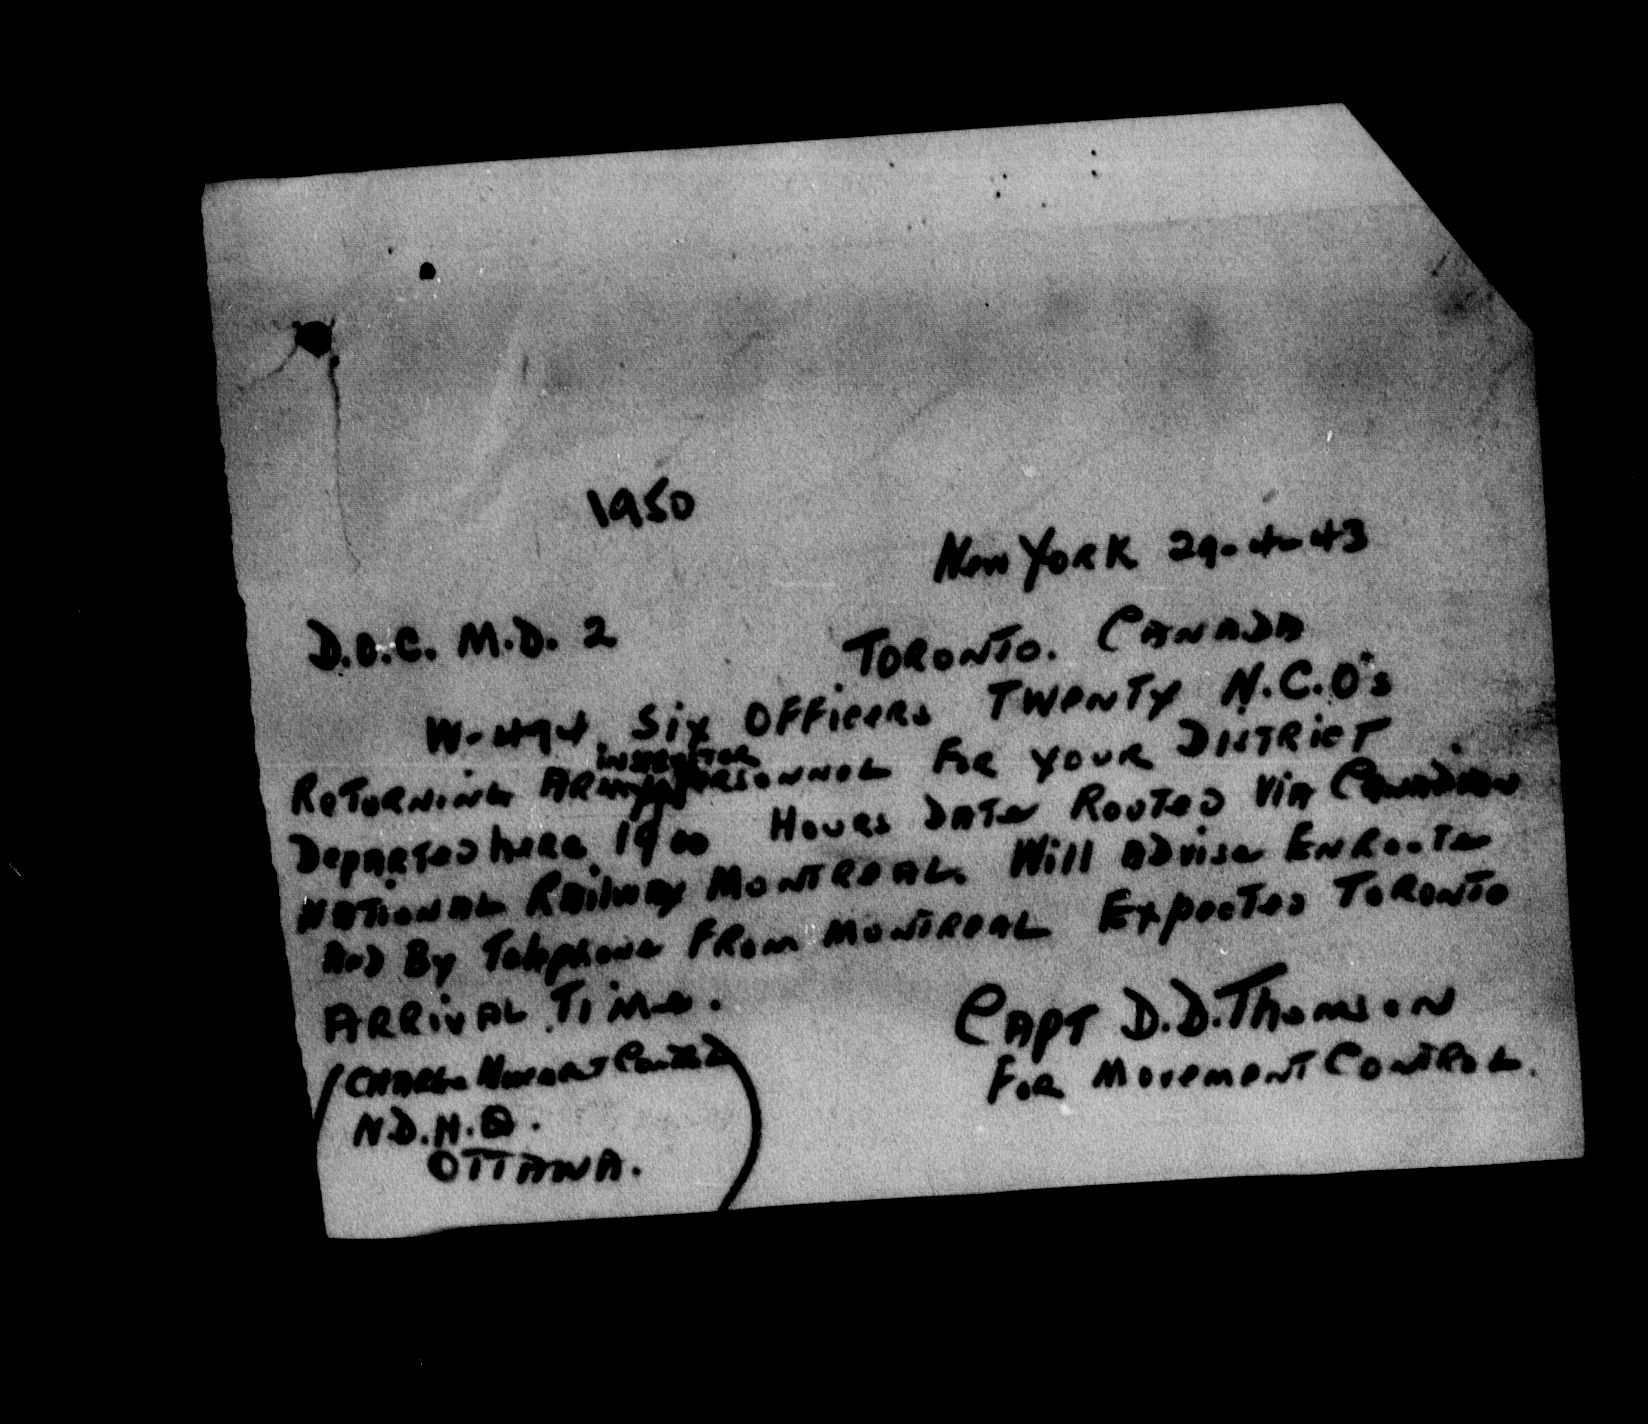 1950
New York 29-4-43
D.O.C. M.D. 2 Toronto. Canada
W-494 Six Officers Twenty N.C.O's
Returning Army Instructor Personnel For Your District
Departed here 1900 Hours Date Routed Via Canadian
National Railway Montreal. Will Advise Enroute
And By Telephone From Montreal Expected Toronto
Arrival Time.
Capt D.D. Thomson
For Movement Control.
(Charge Movement Control
N.D.H.Q.
Ottawa.)